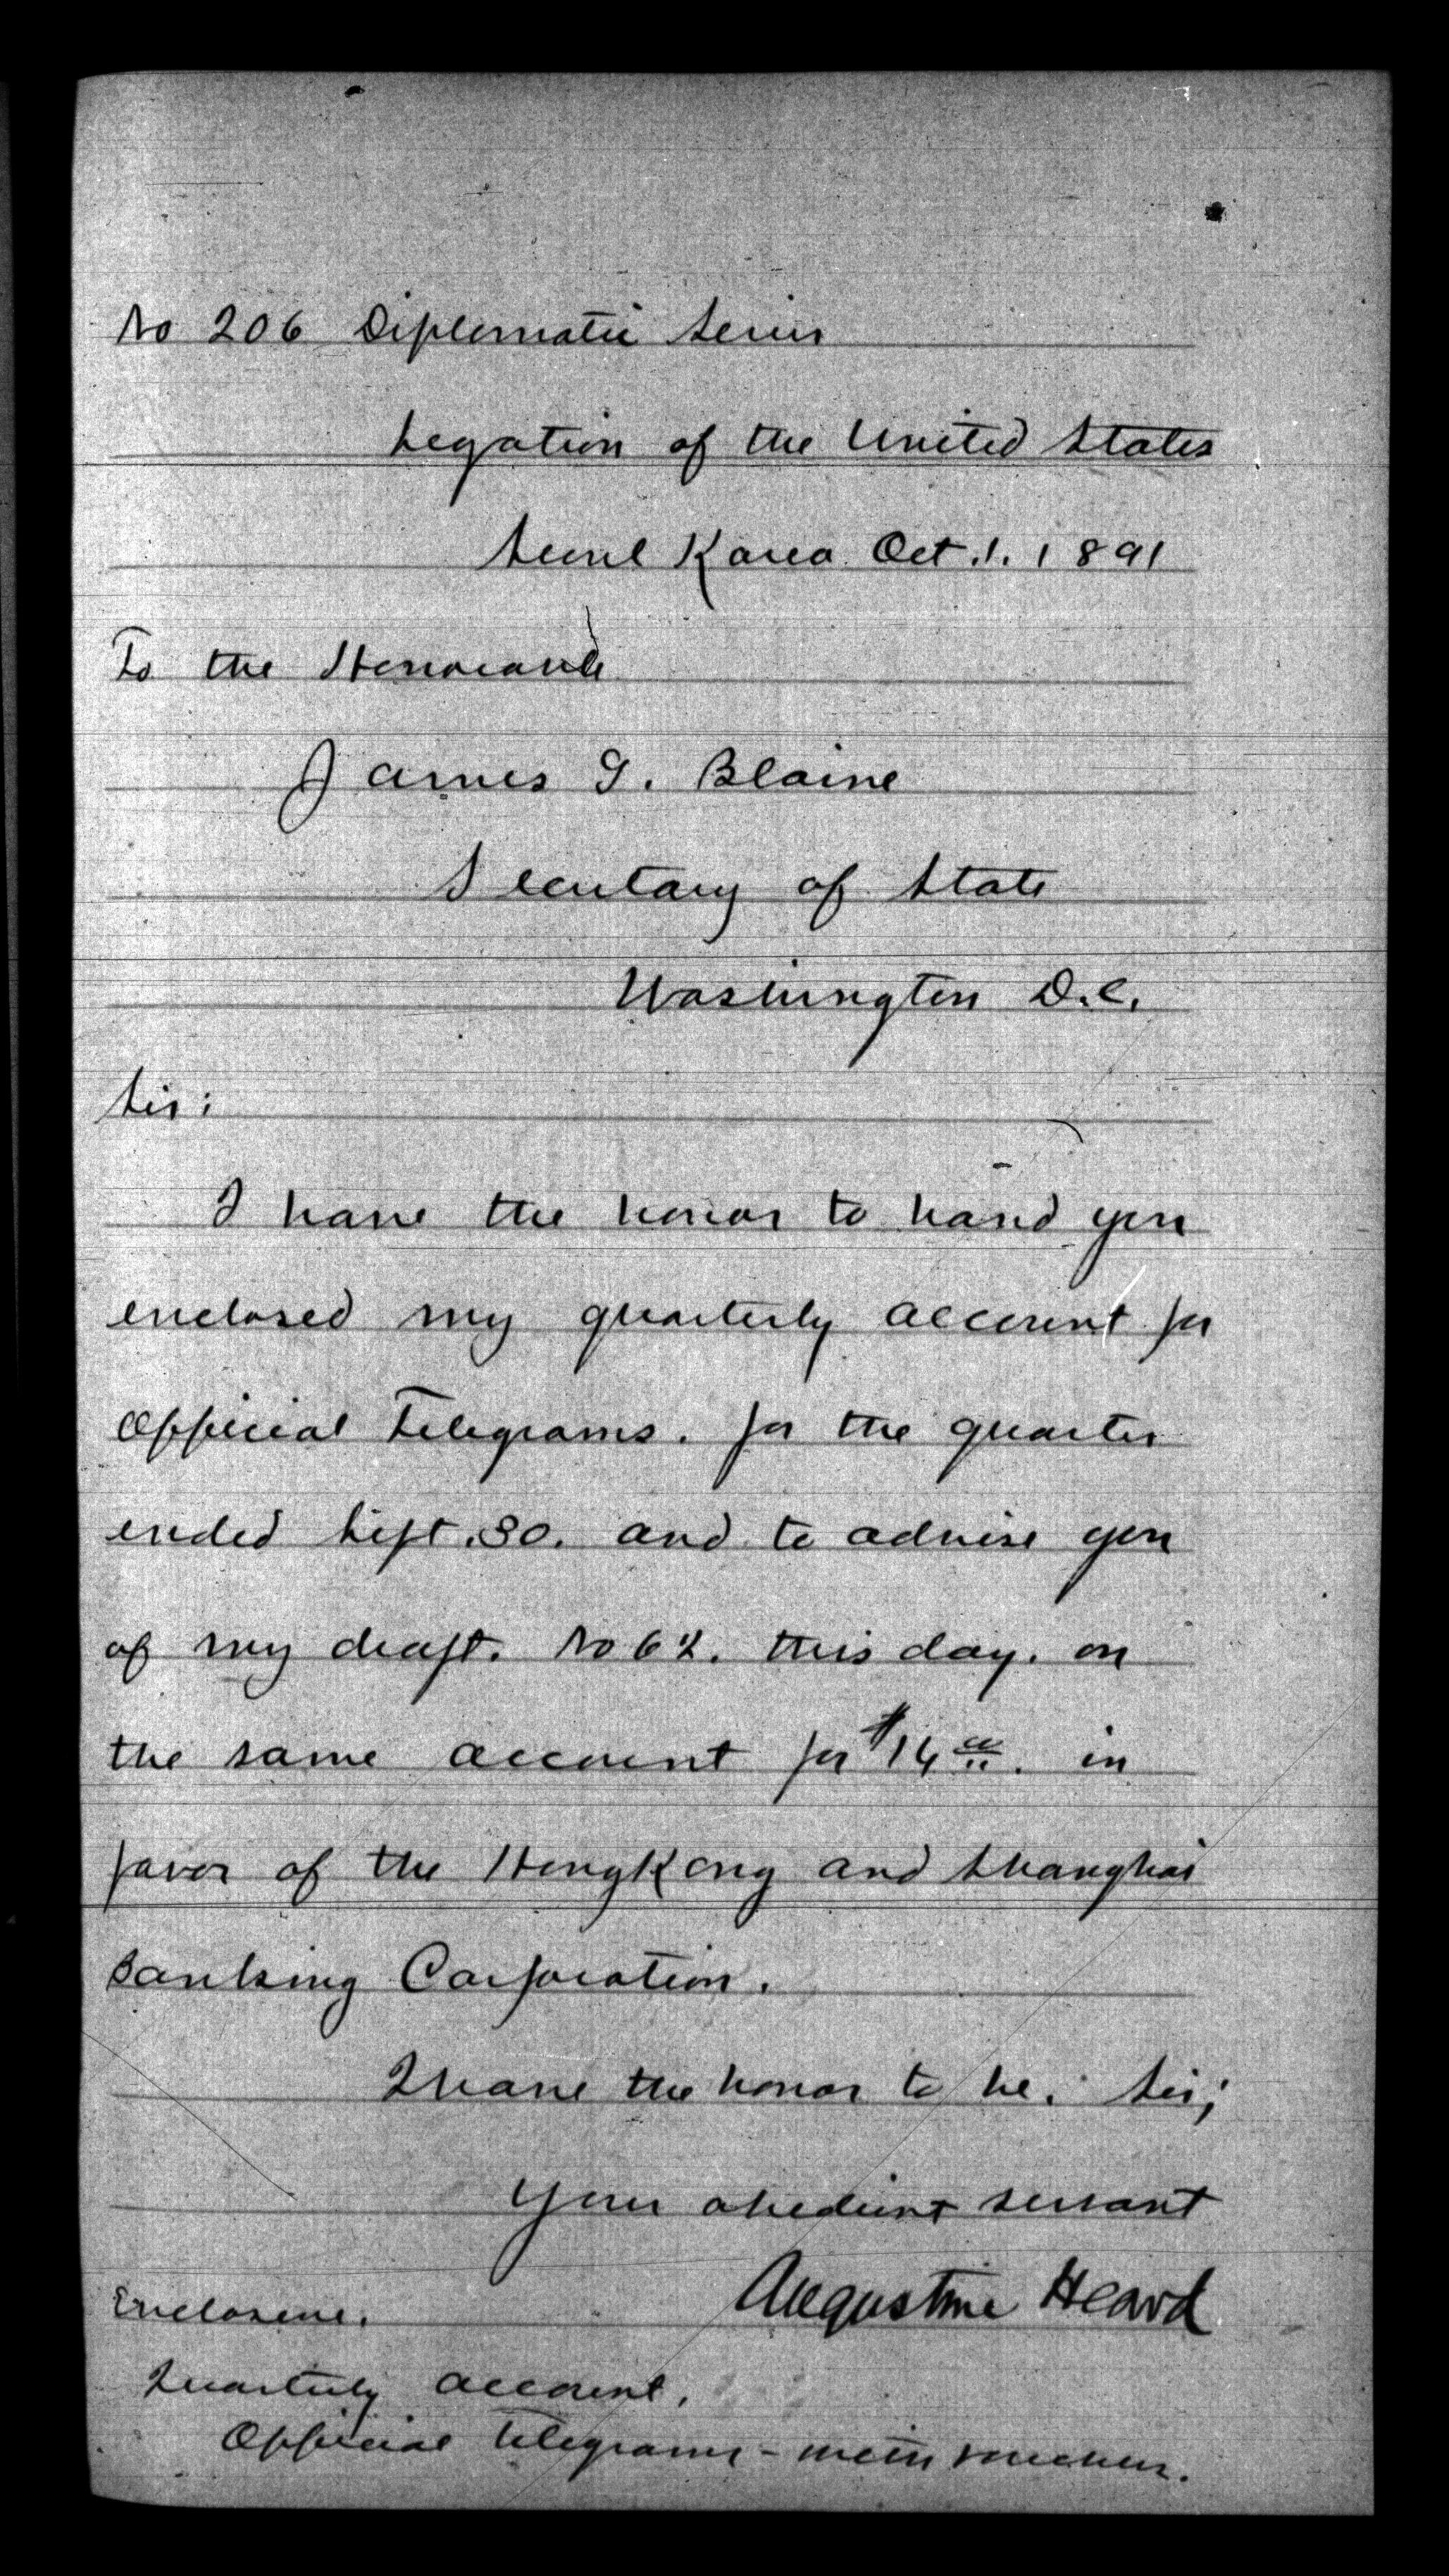 No 206 Diplomatic Series
Legation of the United States
Seoul Korea Oct. 1. 1891
To the Honorable
James G. Blaine
Secretary of State
Washington D.C.
Sir:
I have the honor to hand you
enclosed my quarterly account for
Official Telegrams. for the quarter
ended Sept. 30. and to advise you
of my draft. No 62. this day. on
the same account for $14 00. in
favor of the HongKong and Shanghai
Banking Corporation.
I have the honor to be. Sir;
Your obedient servant
Augustine Heard
Enclosure.
Quarterly account.
Official Telegrams - with vouchers.